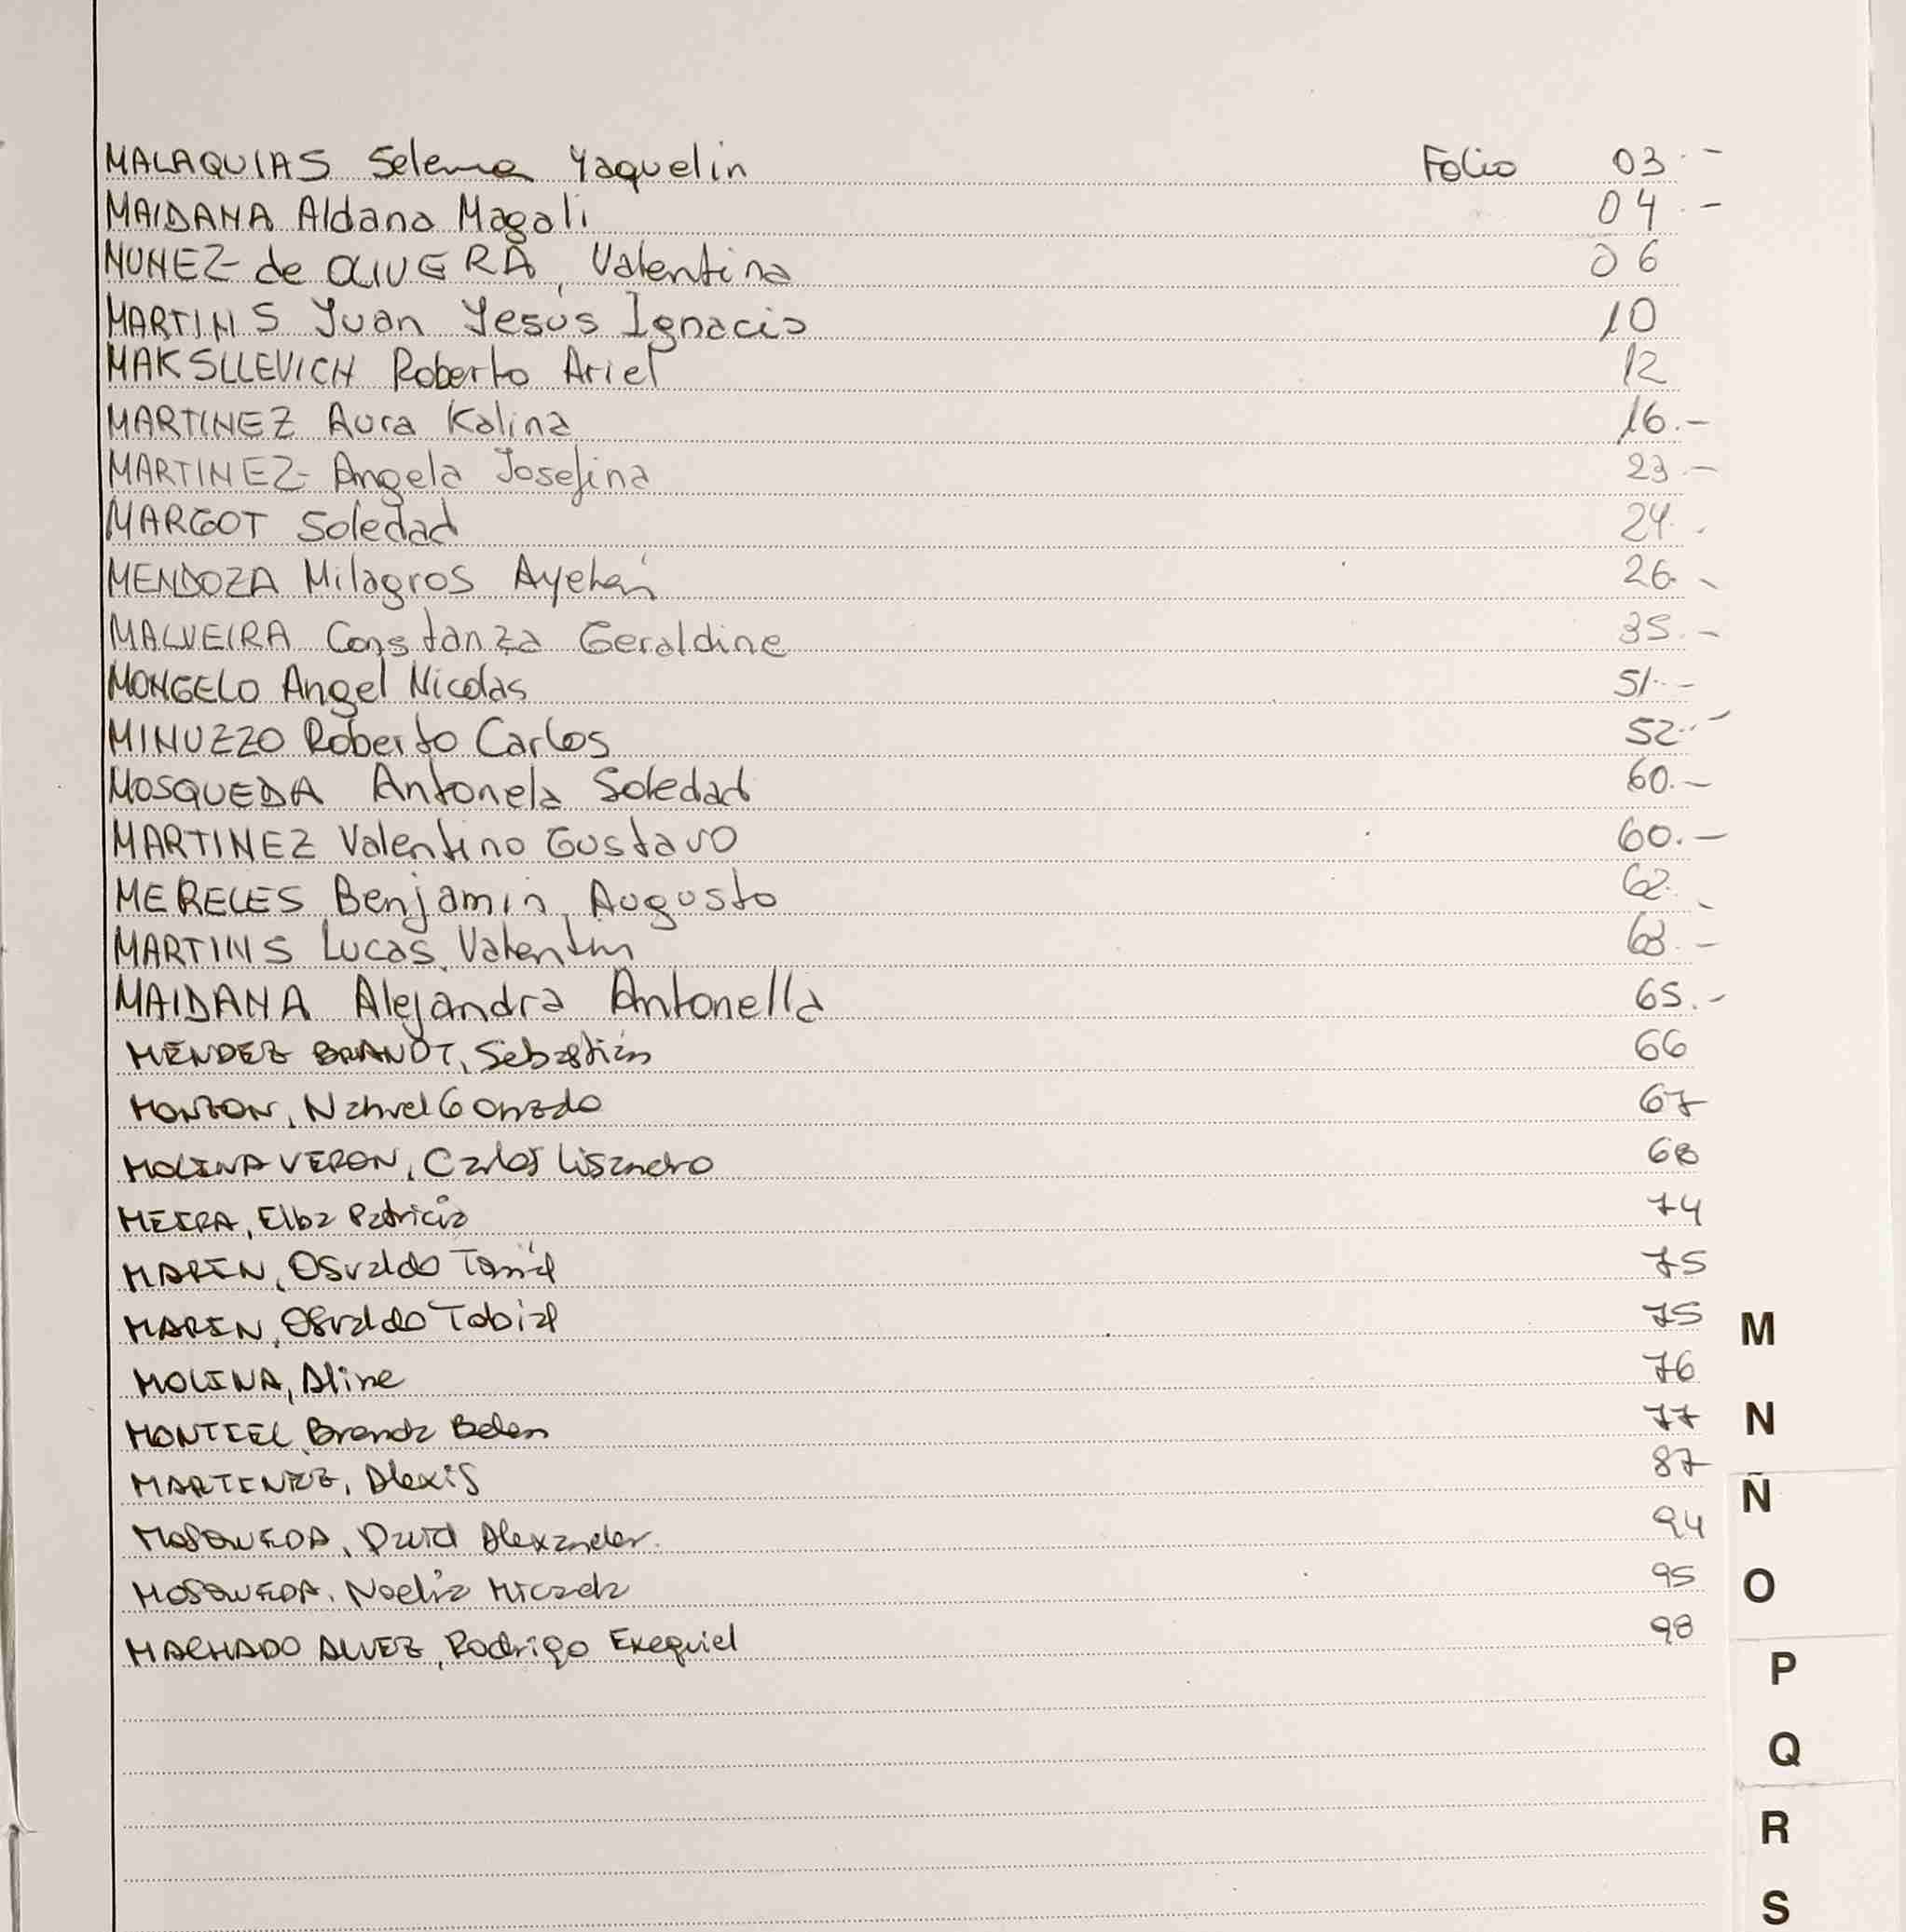 MALAQUIAS Selema Yaquelin Folio 03.-
MAIDANA Aldana Magali 04.-
NUNEZ de OLIVERA, Valentina 06
MARTINS Juan Jesús Ignacio 10
MAKSLLEVICH Roberto Ariel 12
MARTINEZ Aura Kalina 16.-
MARTINEZ Angela Josefina 23.-
MARGOT Soledad 24.-
MENDOZA Milagros Ayelén 26.-
MALVEIRA Constanza Geraldine 35.-
MONGELO Angel Nicolas 51.-
MINUZZO Roberto Carlos 52.-
MOSQUEDA Antonela Soledad 60.-
MARTINEZ Valentino Gustavo 60.-
MERELES Benjamin Augusto 62.-
MARTINS Lucas Valentin 63.-
MAIDANA Alejandra Antonella 65.-
MENDEZ BRANDT, Sebastián 66
MONZON, Nahuel Gonzalo 67
MOLINA VERON, Carlos Lisandro 68
MEIRA, Elba Patricia 74
MARIN, Osvaldo 75
MARIN, Osvaldo Tobial 75
MOLINA, Aline 76
MONTIEL, Brenda Belen 77
MARTINEZ, Alexis 87
MOSQUEDA, David Alexander. 94
MOSQUEDA, Noelia Micaela 95
MACHADO ALVEZ, Rodrigo Exequiel 98
M
N
Ñ
O
P
Q
R
S